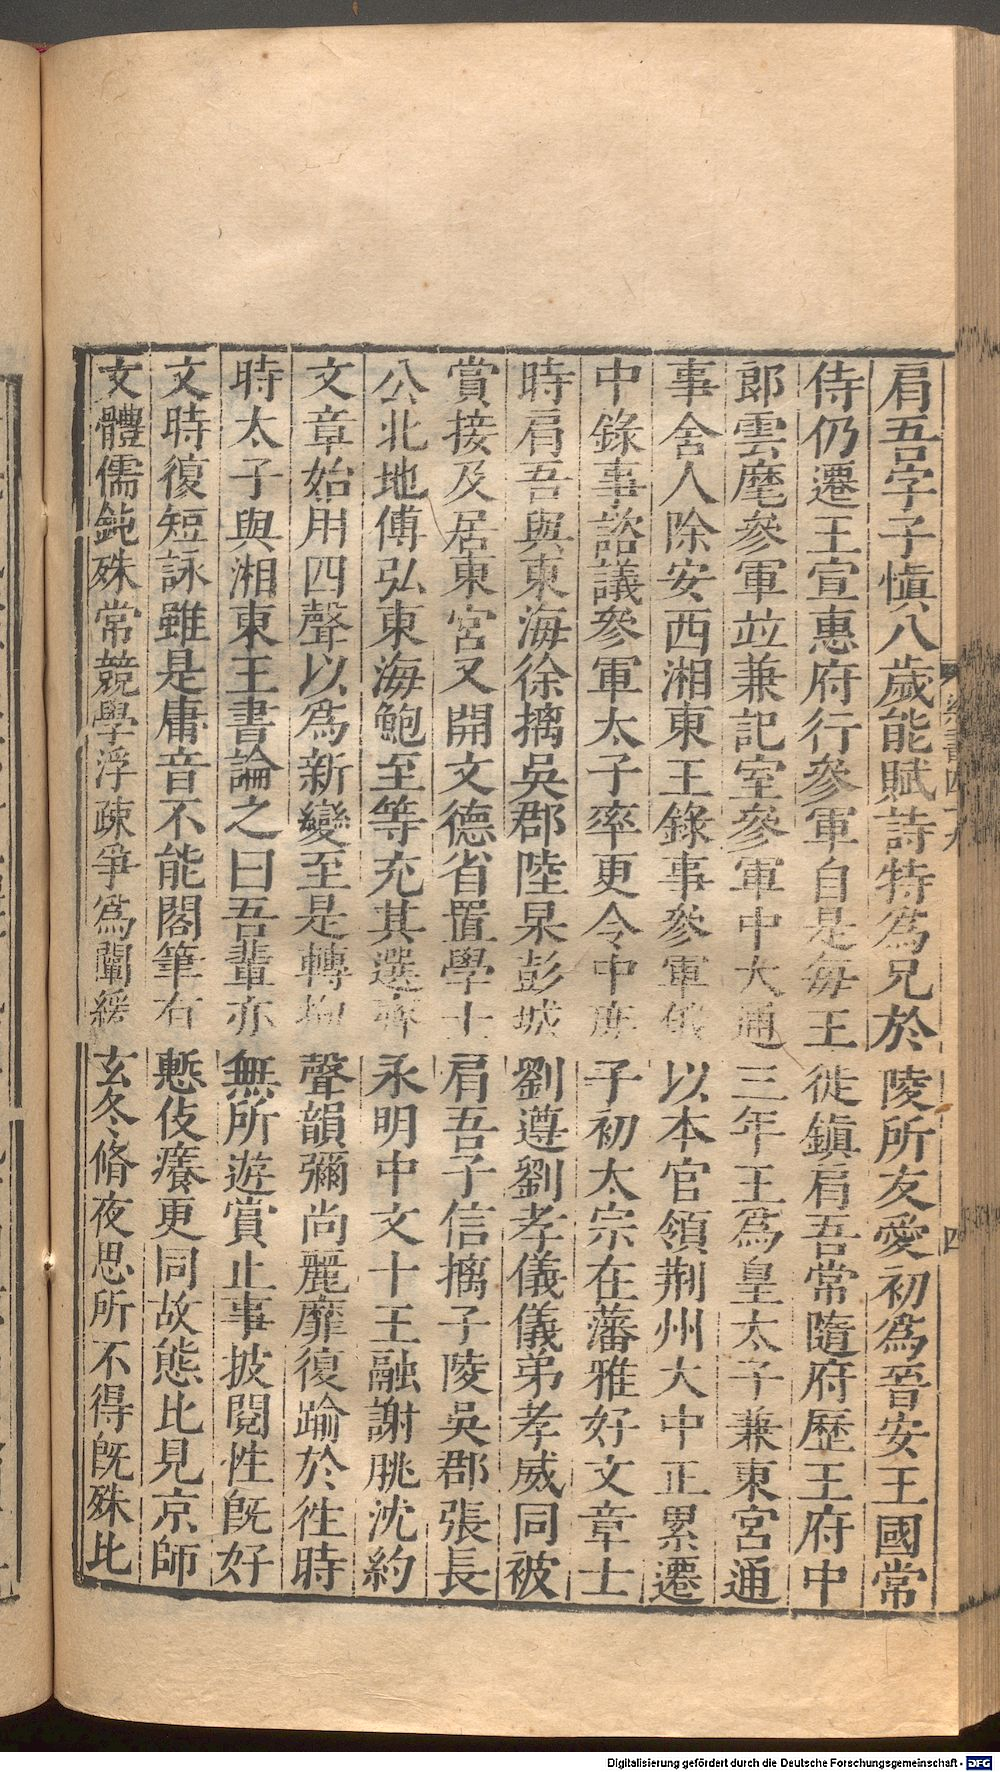 肩吾字子愼八歲能賦詩特為兄於陵所友愛初為晉安王國常
侍仍遷王宣惠府行參軍自是每王徙鎮肩吾常隨府歷王府中
郎雲麾參軍並兼記室參軍中大通三年王為皇太子兼東宮通
事舍人除安西湘東王錄事參軍俄以本官領荆州大中正累遷
中錄事諮議參軍太子率更令中庶子初太宗在藩雅好文章士
時肩吾與東海徐摛吳郡陸杲彭城劉遵劉孝儀儀弟孝威同被
賞接及居東宮又開文德省置學士肩吾子信摛子陵吳郡張長
公北地傅弘東海鮑至等充其選齊永明中文士王融謝朓沈約
文章始用四聲以為新變至是轉拘聲韻彌尚麗靡復踰於徃時
時太子與湘東王書論之曰吾輩亦無所遊賞止事披閱性旣好
文時復短詠雖是庸音不能閣筆有慙伎癢更同故態比見京師
文體儒鈍殊常競學浮疎爭為闡緩玄冬脩夜思所不得旣殊比
梁書四十九
四
Digitalisierung gefördert durch die Deutsche Forschungsgemeinschaft - DFG